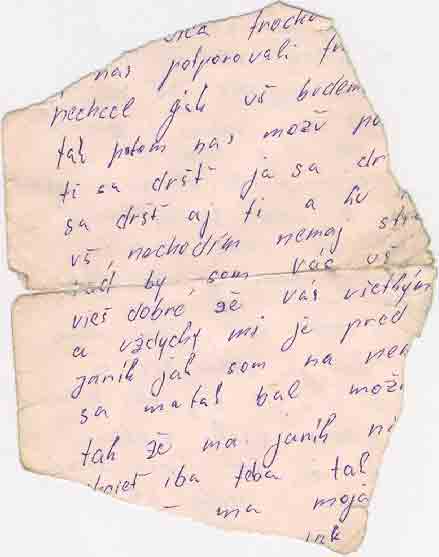 trochu
nas potporovali
nechcel jak uš budem
tak potom nas možu
ti sa dršť ja sa
sa dršť aj ti a
uš nechodím nemaj
by som vás uš
vieš dobre že vás všetkým
a vždychy mi je pred
janík jak som na
sa matal bal moži
tak že ma janík
iba teba tak
ma moja